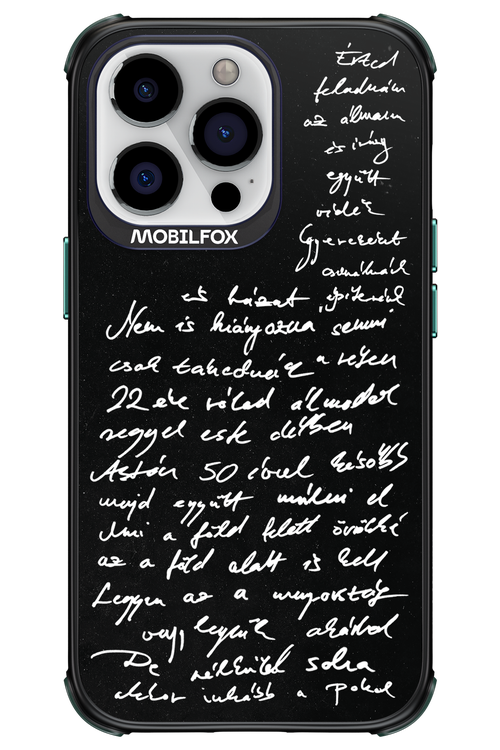 MOBILFOX
Érted
feladnám
az álmaim
és így
együtt
vidék
Gyerekeink
csinálnánk
és házat építenénk
Nem is hiányozna semmi
csak takednék a részem
22 éve rólad álmodok
reggel este délben
Aztán 50 évvel később
majd együtt múlni el
Ami a föld felett örökké
az a föld alatt is kell
Legyen az a mennyország
vagy legyünk akárhol
De nélküled soha
akkor inkább a pokol